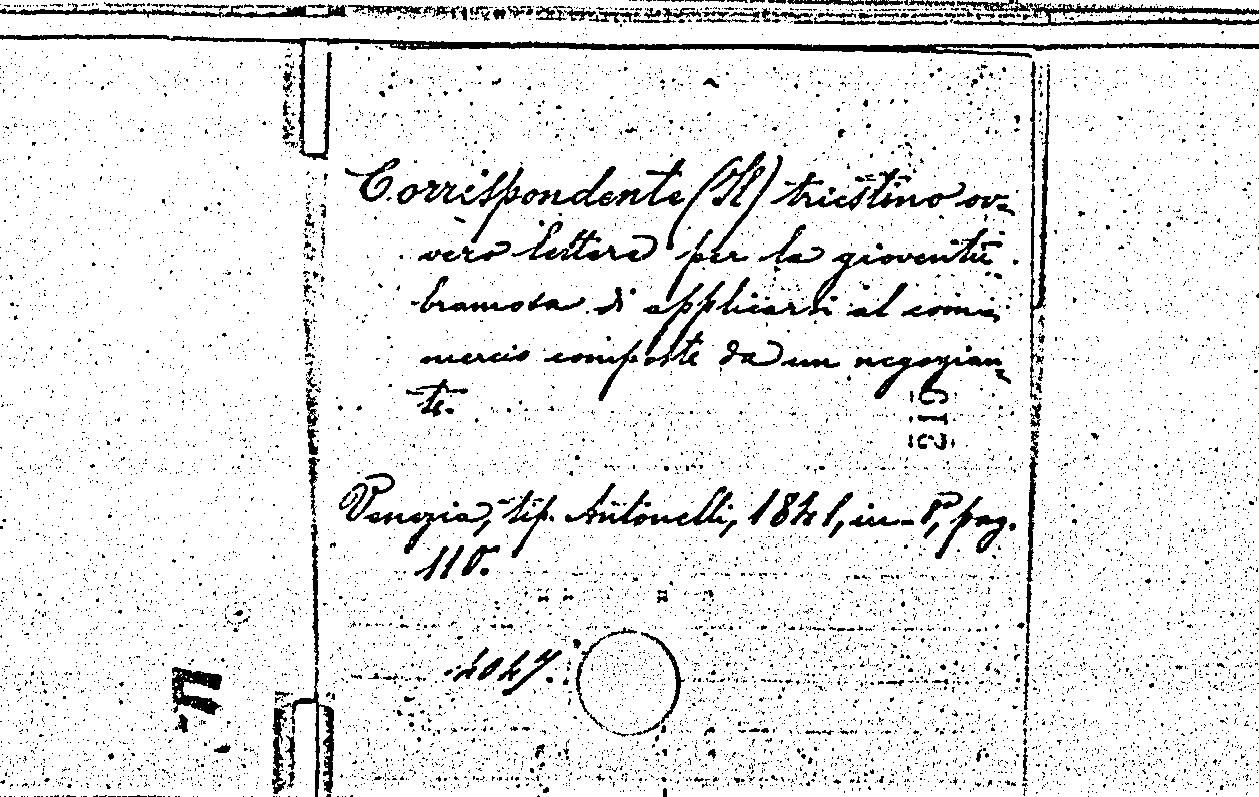 Corrispondente (Il) triestino ov-
vero lettere per la gioventù
bramosa di applicarsi al com-
mercio composte da un negozian-
te.
215
Venezia, tip. Antonelli, 1841, in-8, pag.
110.